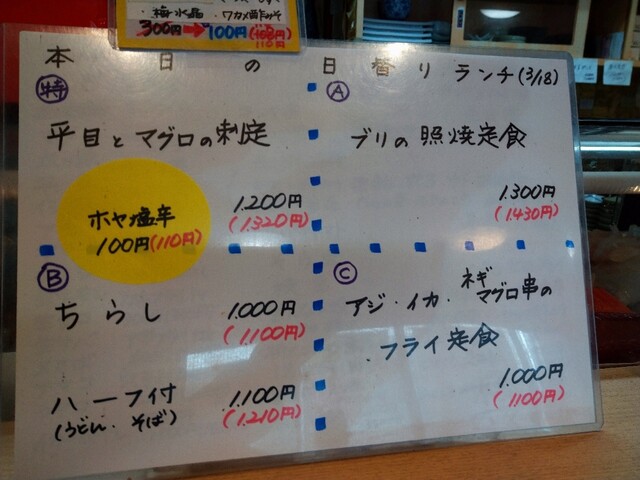 梅水晶 ・ワカメ酢みそ
300円→100円(110円)
本日の日替りランチ(3/18)
特
平目とマグロの刺定
1.200円
(1.320円)
ホヤ塩辛
100円(110円)
A
ブリの照焼定食
1.300円
(1.430円)
B
ちらし
1.000円
(1.100円)
ハーフ付
(うどん・そば)
1.100円
(1.210円)
C
アジ・イカ・ネギマグロ串の
フライ定食
1.000円
(1100円)